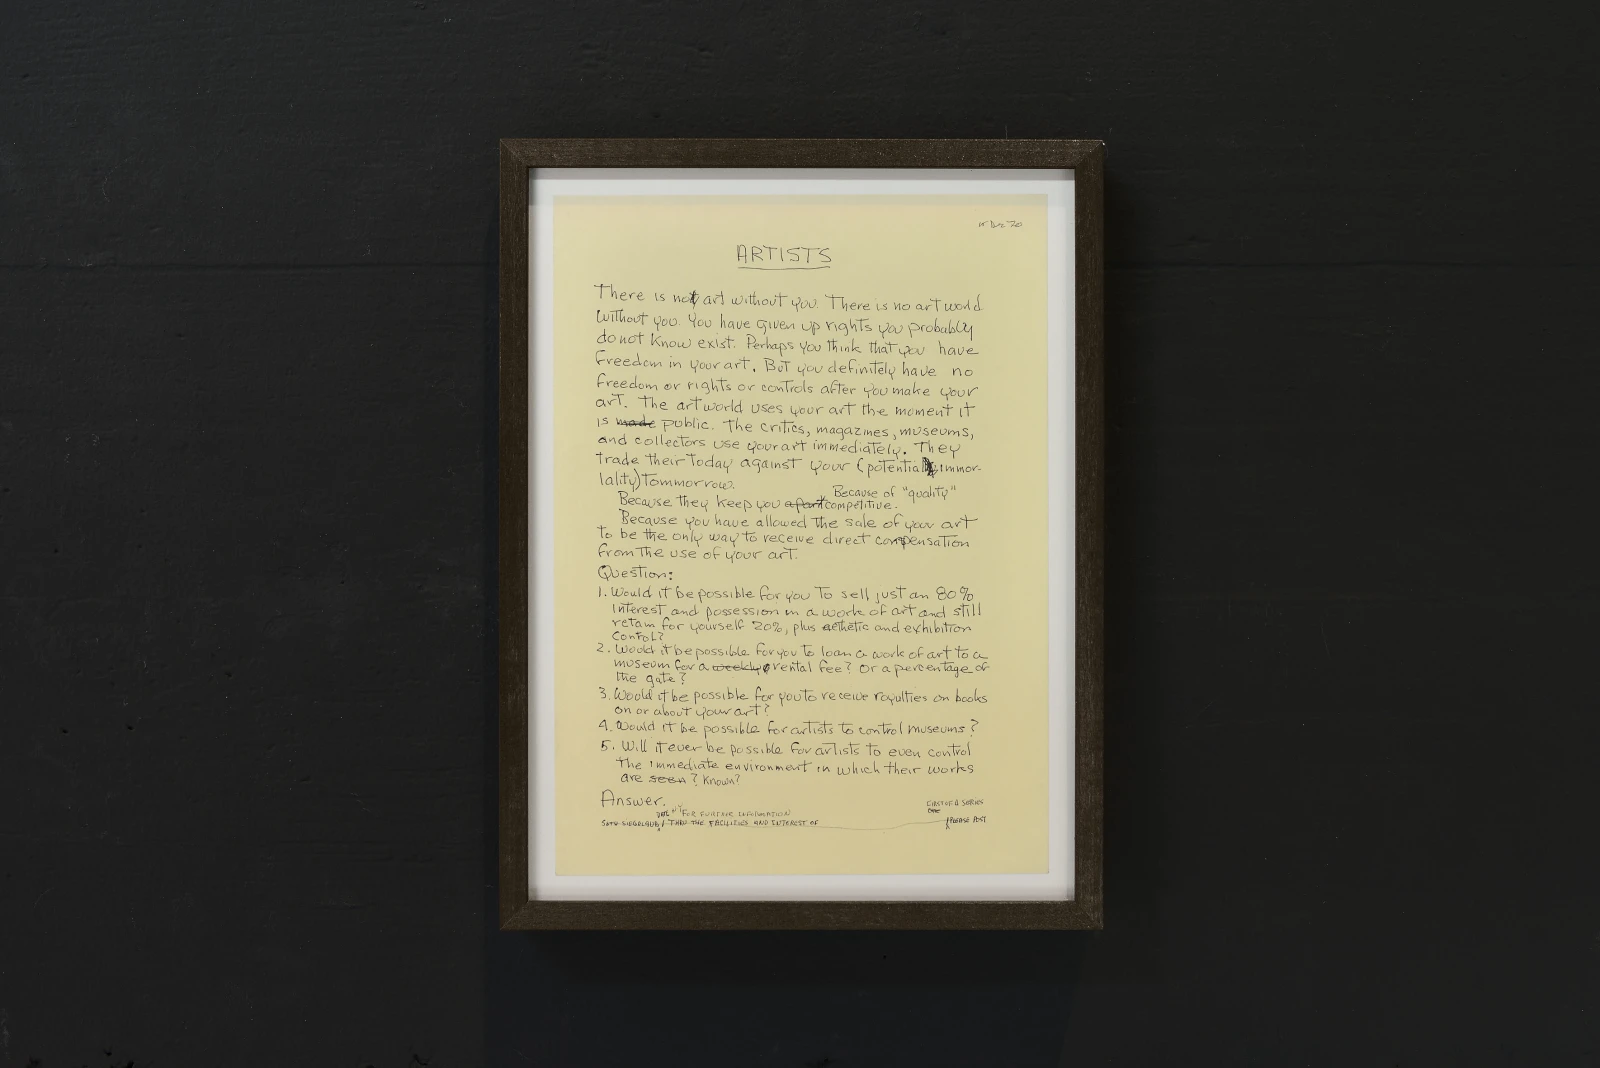 Dec 70
ARTISTS
There is not art without you. There is no art world
without you. You have given up rights you probably
do not know exist. Perhaps you think that you have
freedom in your art. But you definitely have no
freedom or rights or controls after you make your
art. The art world uses your art the moment it
is made public. The critics, magazines, museums,
and collectors use your art immediately. They
trade their today against your (potential immor-
tality) tommorrow.
Because of "quality"
Because they keep you apart competitive.
Because you have allowed the sale of your art
to be the only way to receive direct compensation
from the use of your art.
Question:
1. Would it be possible for you to sell just an 80%
interest and possession in a work of art and still
retain for yourself 20%, plus aethetic and exhibition
control?
2. Would it be possible for you to loan a work of art to a
museum for a weekly rental fee? Or a percentage of
the gate?
3. Would it be possible for you to receive royalties on books
on or about your art?
4. Would it be possible for artists to control museums?
5. Will it ever be possible for artists to even control
the immediate environment in which their works
are seen? Known?
Answer.
FOR FURTHER INFORMATION
FIRST OF A SERIES
SETH SIEGELAUB / THRU THE FACILITIES AND INTEREST OF
PLEASE POST